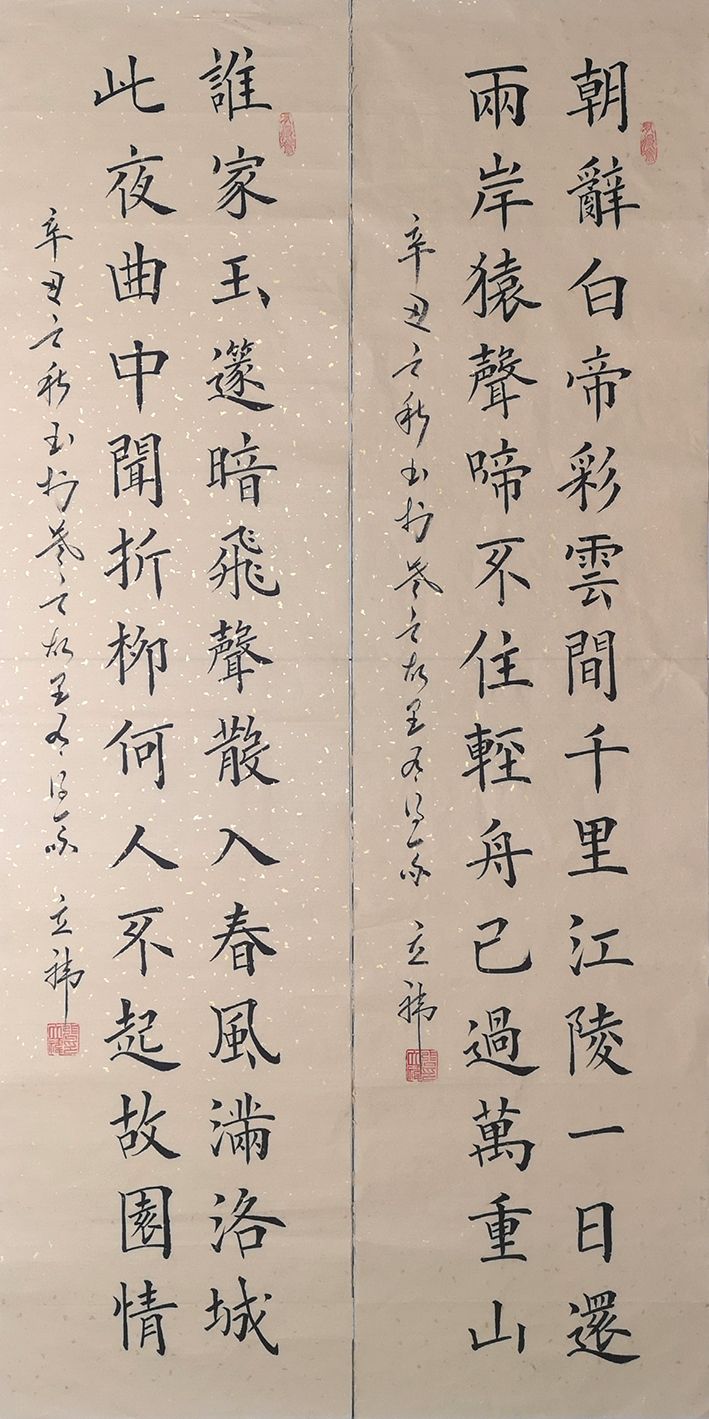 朝辭白帝彩雲間千里江陵一日還
兩岸猿聲啼不住輕舟已過萬重山
辛丑之秋书於羲之故里齋 立禕
誰家玉篴暗飛聲散入春風滿洛城
此夜曲中聞折柳何人不起故園情
辛丑之秋书於羲之故里齋 立禕